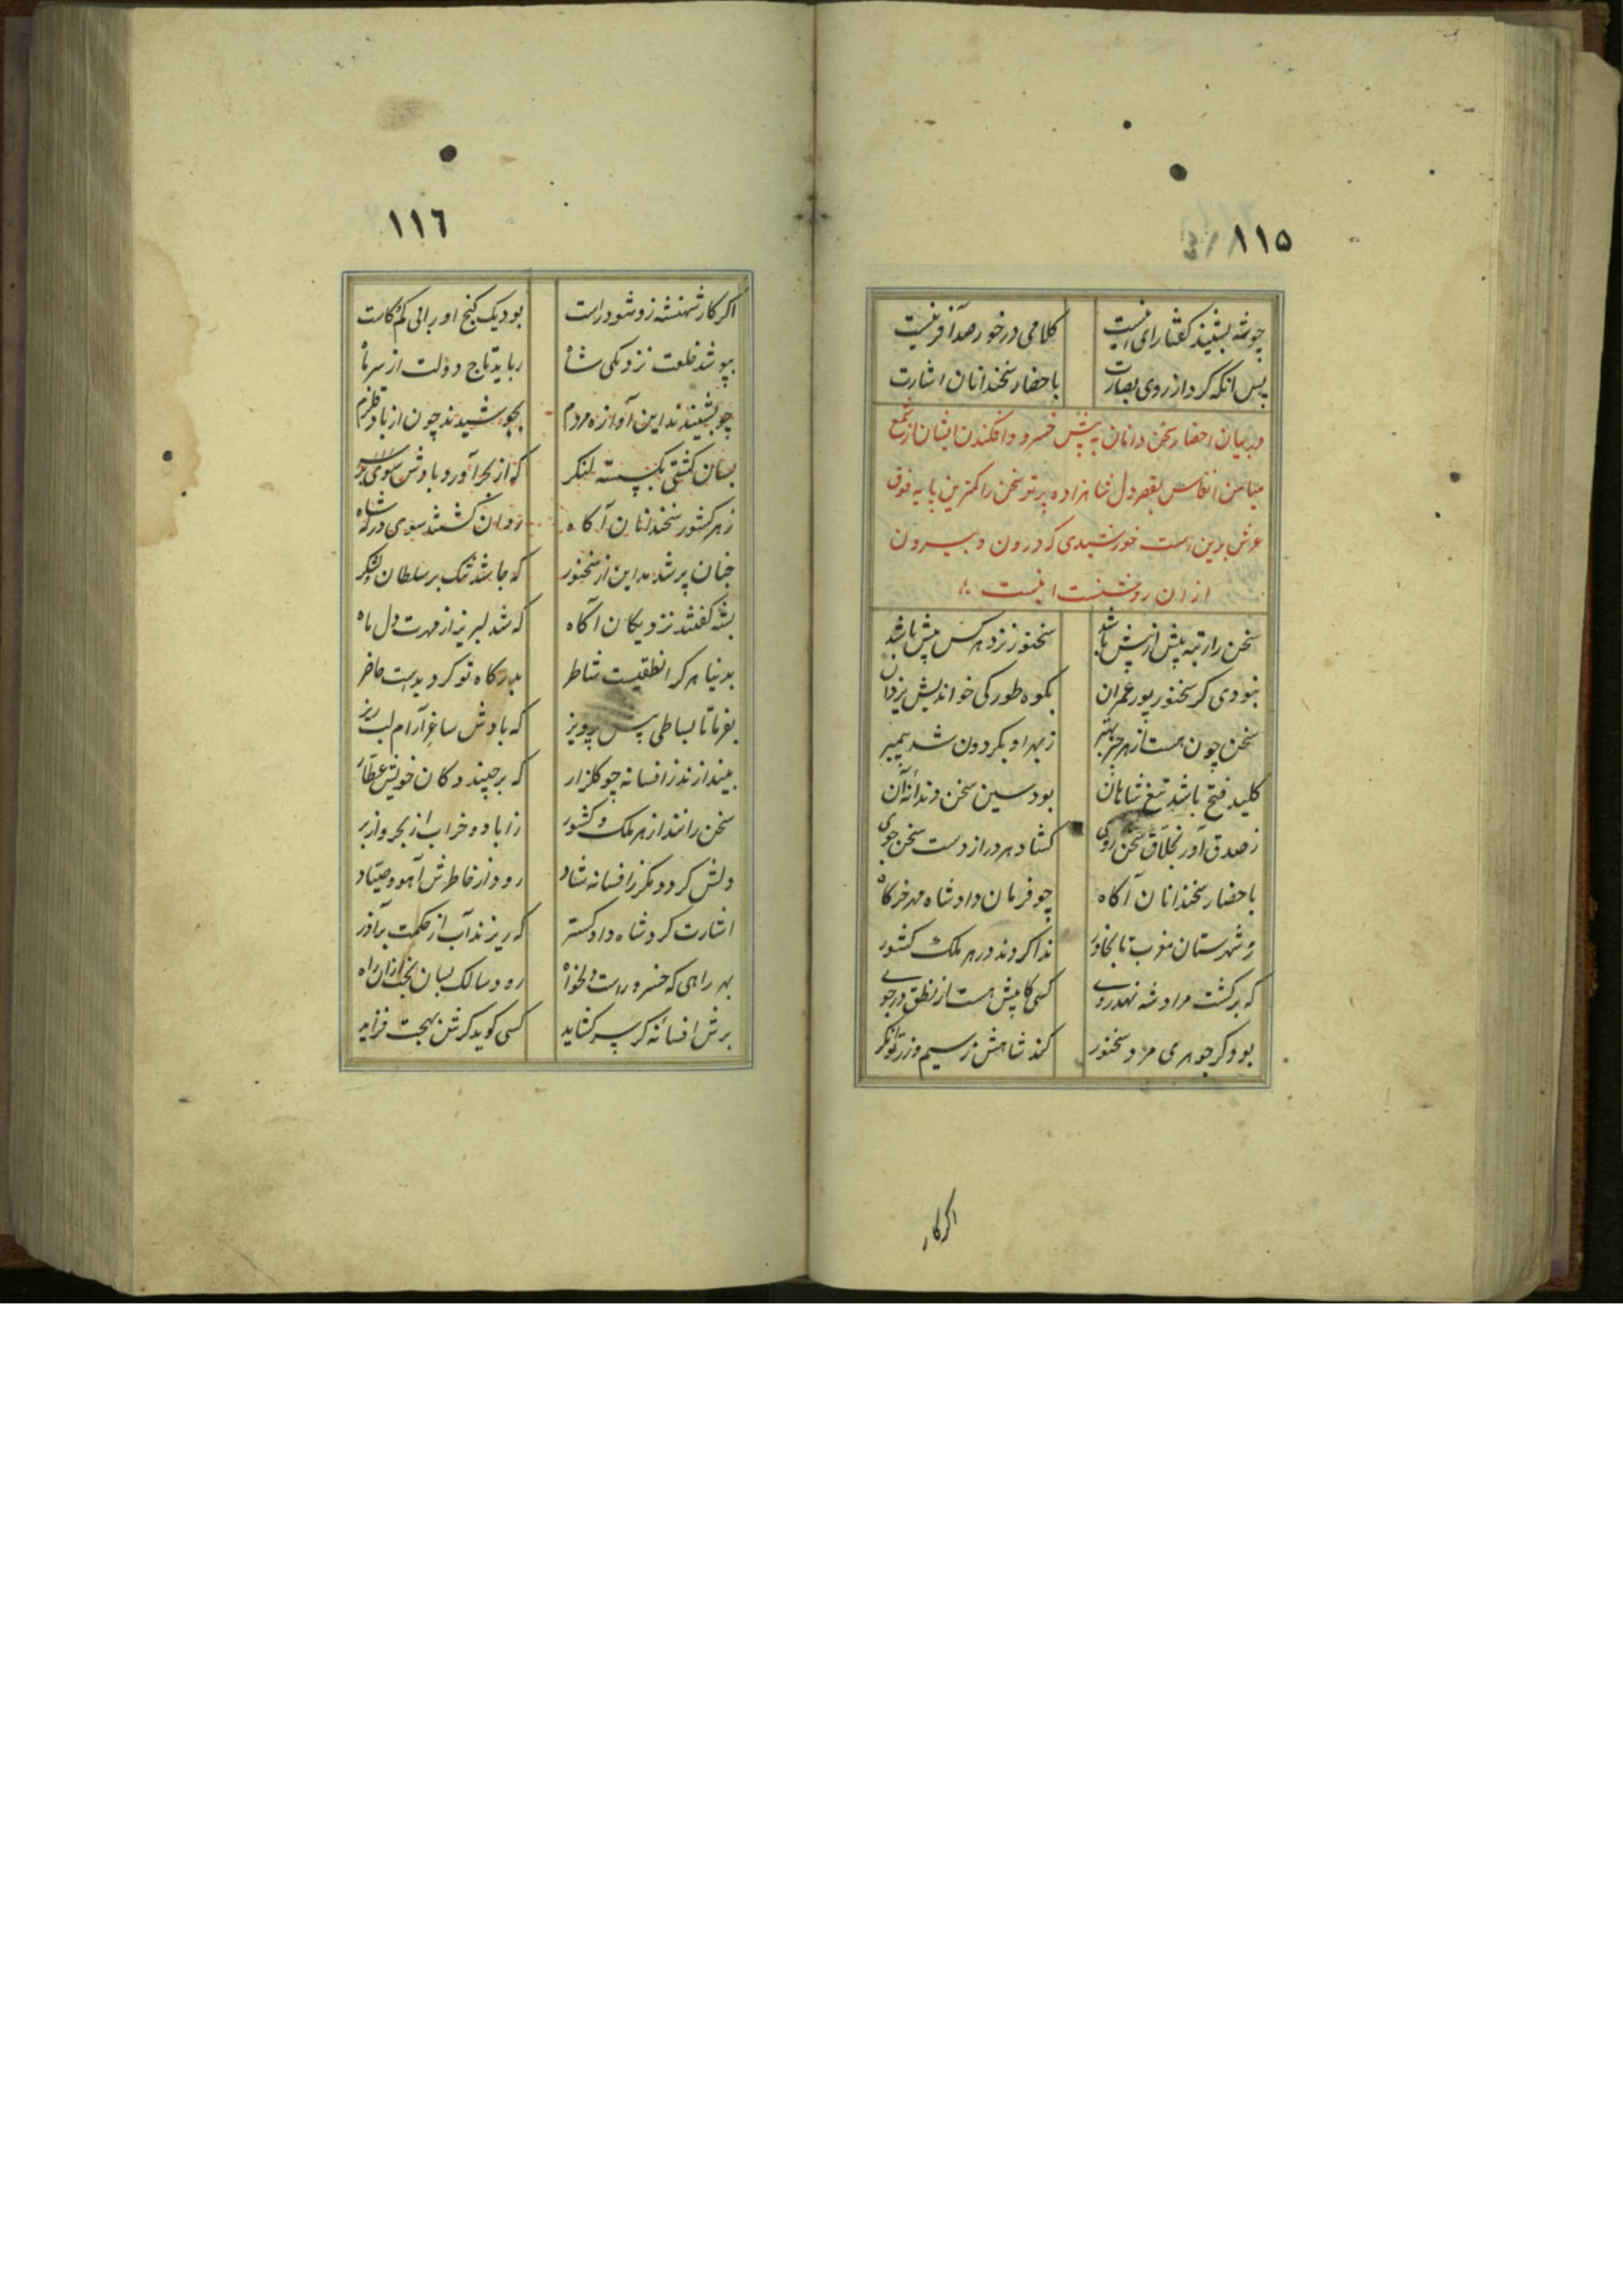 ١١٥
چو شه بشنید گفتا رای نیست کلامی درخور صد آفرینیست
پس انکه کرد از روی بصارت باحضار سخندانان اشارت
در بیان احضار سخن دانان به پیش خسرو و افکندن ایشان از شمع
میامن انفاس بقصر دل شاهزاده پرتو سخن را کمترین پایه فوق
عرش برین است خورشیدی که درون و بیرون
ازان روشنست اینست
سخن را رتبه بیش از بیش باشد سخنور نزد هر کس بیش باشد
نبودی کر سخنور پور عمران بکوه طور کی خواندیش یزدان
سخن چون هست از هر چیز بهتر زبهر او بکردون شد پیمبر
کلید فتح باشد تیغ شاهان بود سین سخن دندانه آن
ز صدق آور بخلاق سخن روی کشاد هر در از دست سخن جوی
باحضار سخندانان آکاه چو فرمان داد شاه مهر خرکاه
ز شهرستان مغرب تا بخاور ندا کردند در هر ملک کشور
که برکشت مراد شه نهد روی کسی کابیش هست از نطق در جوی
بود کر جوهری مرد سخنور کند شاهش ز سیم و زر توانکر
اکر کار
١١٦
اکر کار شهنشه زو شود راست بود یک کنج او را بی کم و کاست
بپوشد خلعت نزدیکی شاه رباید تاج دولت از سر ماه
چو بشنیدند این آوازه مردم بجوشیدند چون از باد قلزم
بسان کشتی بکسسته لنکر که از بحر آورد بادش سوی بر
ز هر کشور سخندانان آکاه روان کشتند سوی درکه شاه
چنان پر شد مداین از سخنور که جا شد تنک بر سلطان و لشکر
بشه کفتند نزدیکان آکاه که شد لبریز از مهرت دل ماه
بدنیا هر کرا نطقیست شاطر بدرکاه تو کردیدست حاضر
بفرما تا بساطی پیش پرویز که بادش ساغر آرام لب ریز
بیندازند ز افسانه چو کلزار که برچیند دکان خویش عطار
سخن رانند از هر ملک و کشور ز آباد و خراب از بحر و از بر
دلش کردد مکر ز افسانه شاد رود از خاطرش آهو و صیاد
اشارت کرد شاه دادکستر که ریزند آب از حکمت بر آذر
بهر راهی که خسرو راست دلخواه رود سالک بسان بخت ازان راه
برش افسانه کر سر کشاید کسی کوید کزش بهجت فزاید